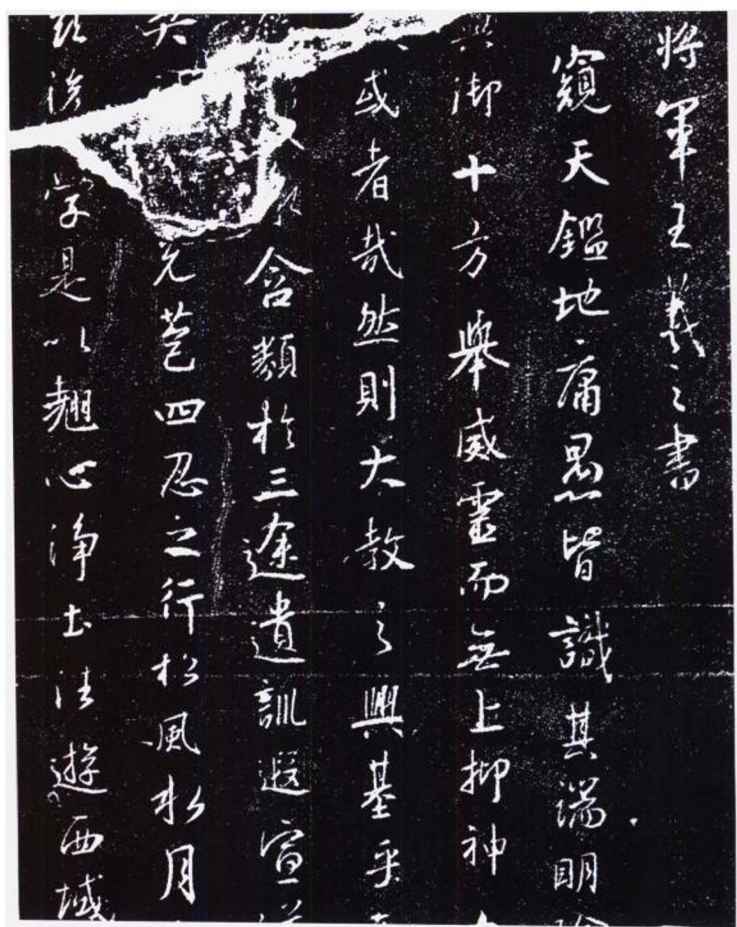 將軍王羲之書
窺天鑑地庸愚皆識其端明
御十方舉威靈而無上抑神
或者哉然則大教之興基乎
含類於三途遺訓遐宣
先苞四忍之行松風水月
學是以翹心淨土法遊西域